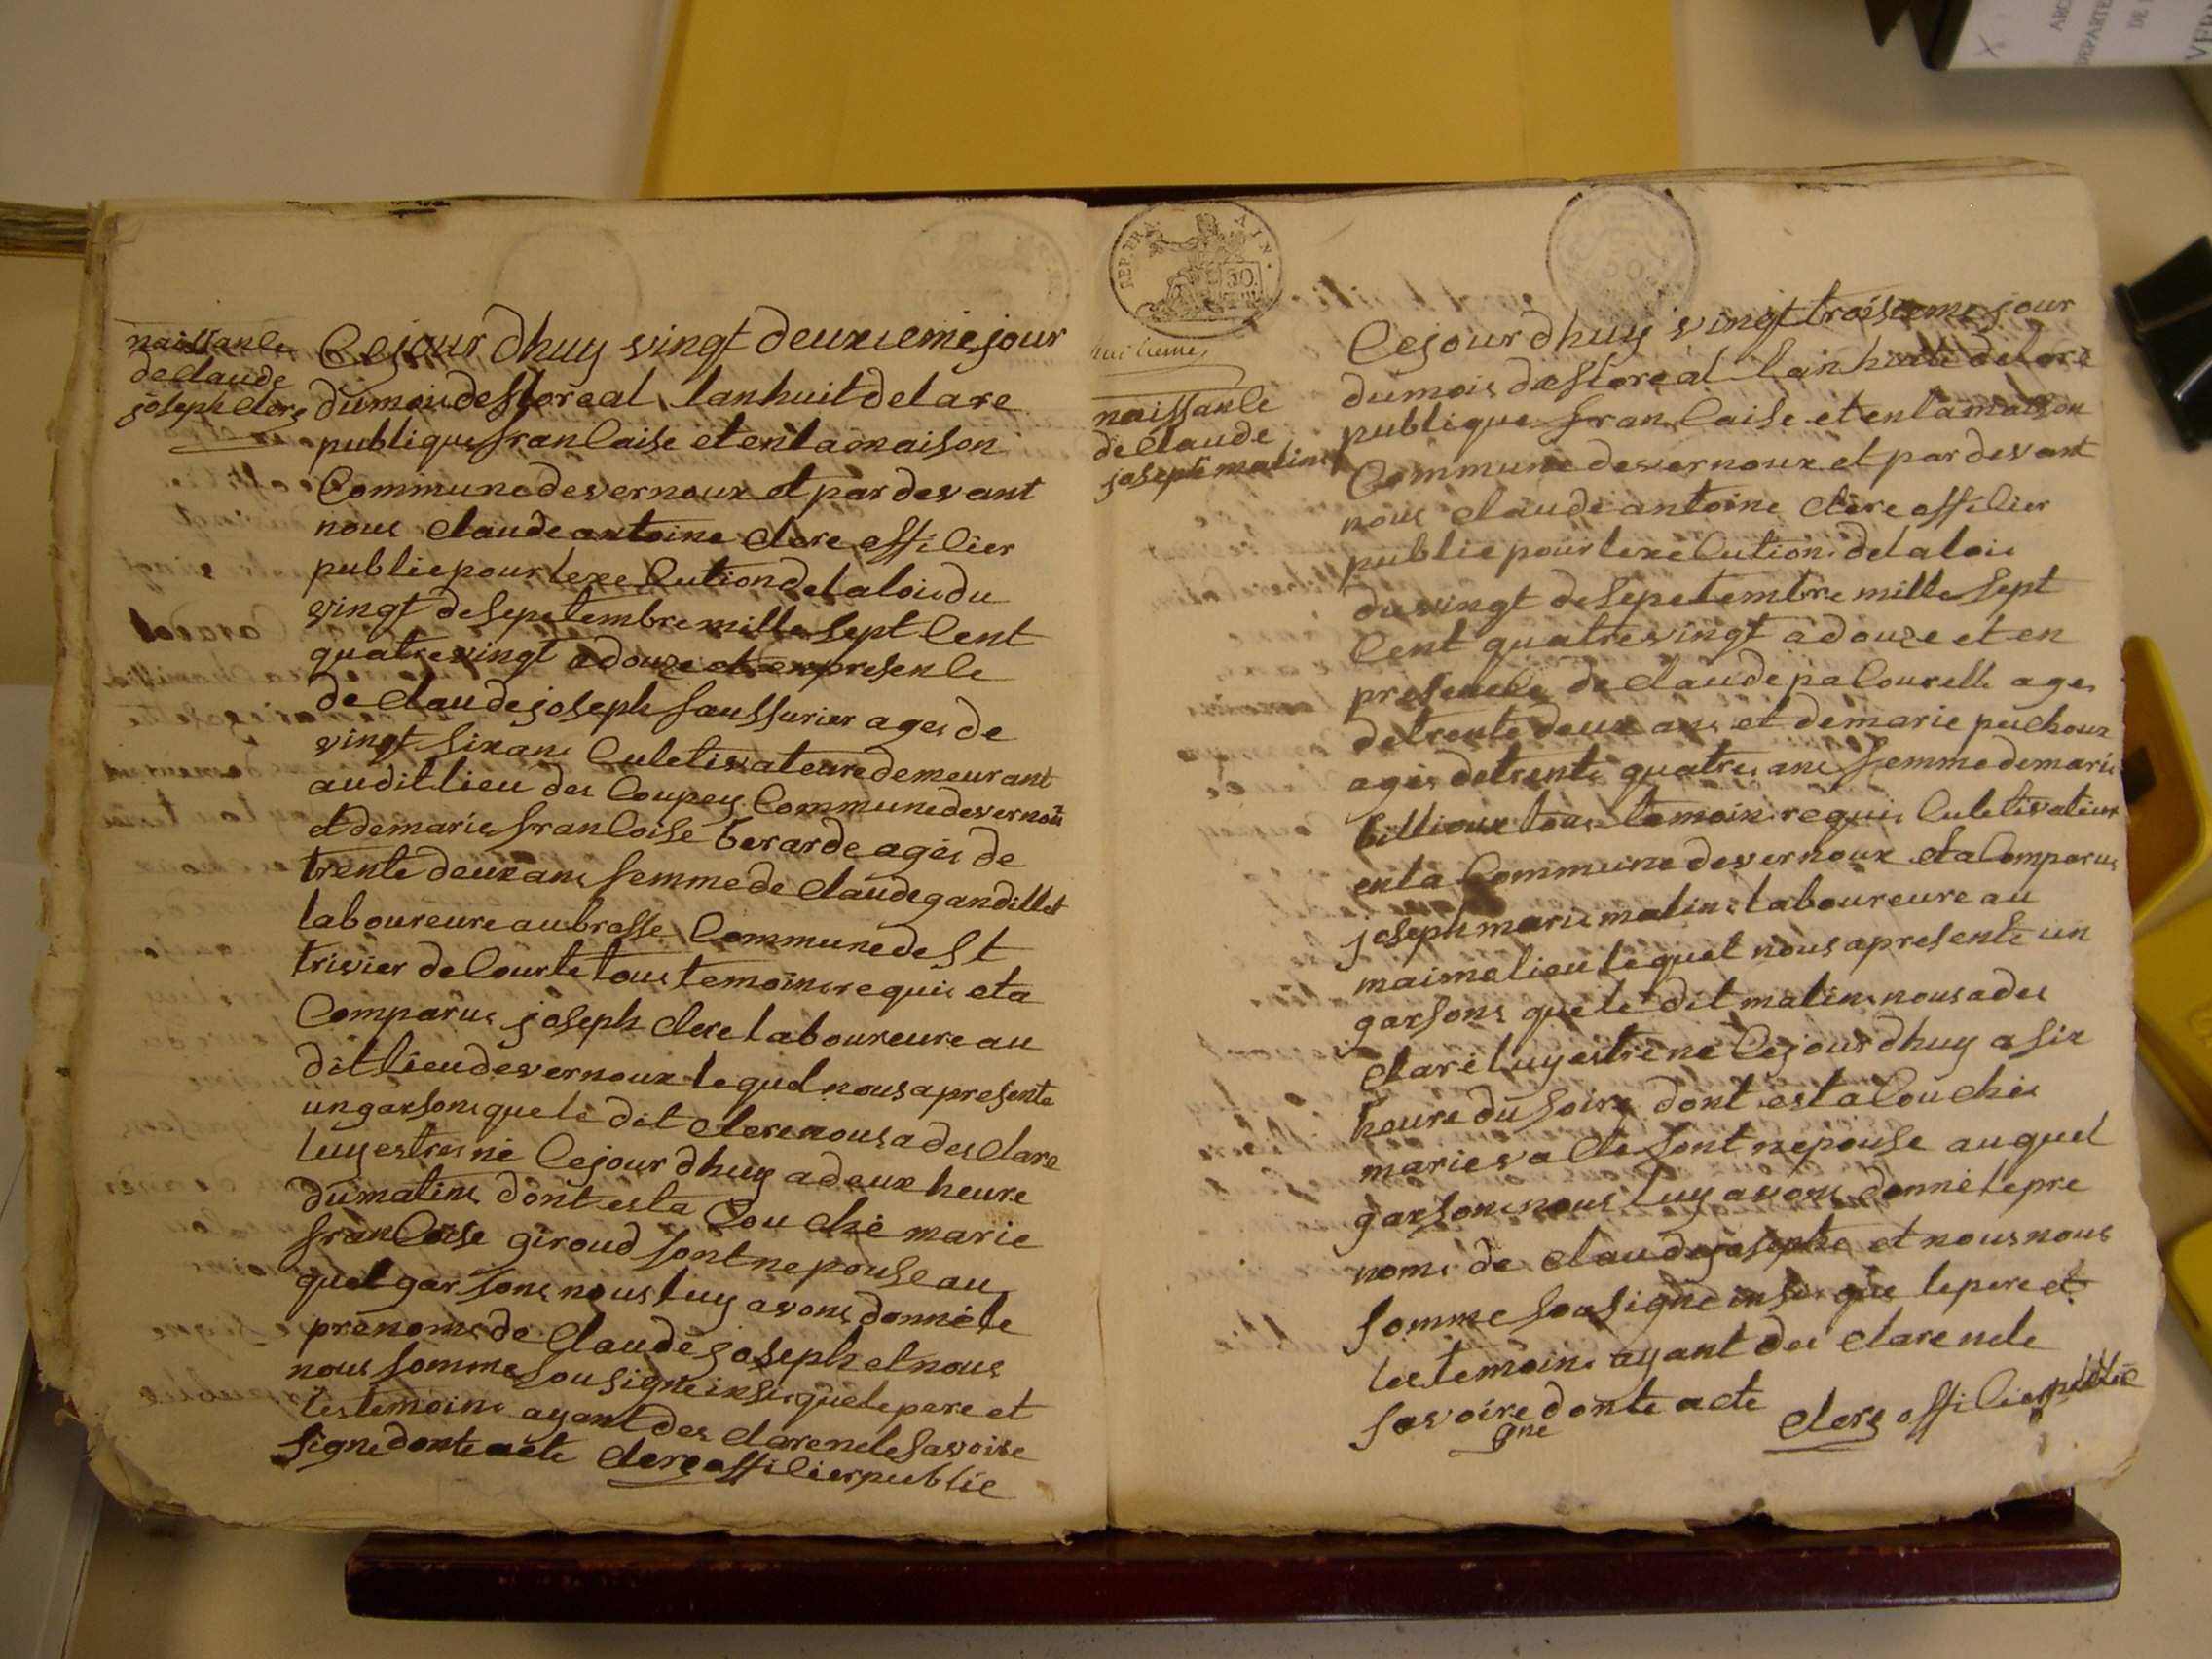 naissance
de claude
joseph clerc
Cejour dhuy vingt deuxieme jour
du moi de floreal lan huit de la re
publique francaise et en la maison
Commune de vernoux et par devant
nous claude antoine clerc officier
public pour lexecution de la loi du
vingt de sepetembre mille sept cent
quatre vingt a douze et en presence
de claude joseph faussurier ages de
vingt six ans culetivateure demeurant
audit lieu des Coupey Commune de vernou
et de marie francoise berarde agés de
trente deux ans femme de claude gandillet
laboureure au brosse Commune de St
trivier de Courte tous temoins requis et a
Comparus joseph clerc laboureure au
dit lieu de vernoux lequel nous a presente
un garsons que le dit clerc nous a des clare
luy estres né Cejour dhuy a deux heure
du matins dont est a Couché marie
francoise giroud sont nepouse au
quel garsons nous luy avons donné le
prenoms de claude joseph et nous
nous somme sousigné insi que le pere et
les temoins ayant des clare ne le savoire
signe dont acte clerc officier public
REP. FRA.
AIN.
50
naissance
de claude
joseph matin
Cejour dhuy vingt troisieme jour
du mois de floreal lan huite de la re
publique francaise et en la maison
Commune de vernoux et par devant
nous claude antoine clerc officier
public pour lexecution de la loi
du vingt de sepetembre mille sept
cent quatre vingt a douze et en
presence de claude pacourelle ages
de trente deux ans et de marie puchoux
agés de trente quatres ans femme de marie
billioux tous temoins requis culetivateur
en la Commune de vernoux et a Comparus
joseph marie matins laboureure au
maime lieu lequel nous a presenté un
garsons que le dit matins nous a des
claré luy estre né Cejour dhuy a six
heure du soire dont est a Couchés
marie vacle sont nepouse au quel
garsons nous luy avons donné le pre
noms de claude joseph et nous nous
somme sousigné insi que le pere et
les temoins ayant des clare ne le
savoire dont acte
gne
clerc officier public
ARC
DEPARTE
DE
VER